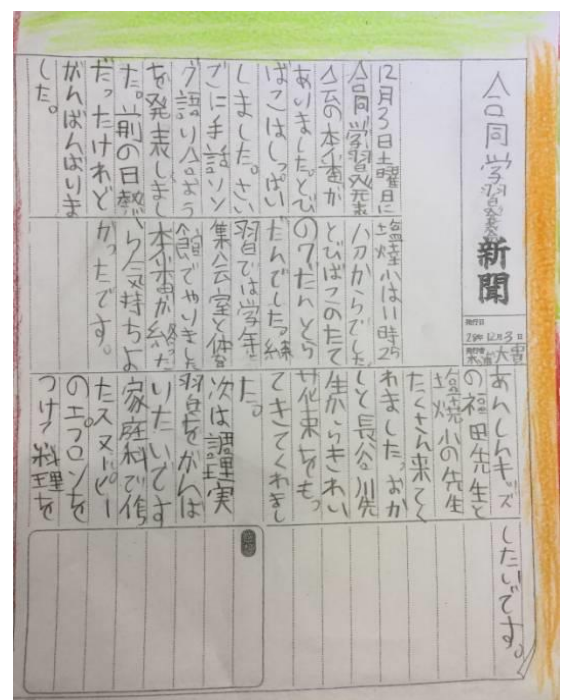 合同学習発表新聞
発行日
28年12月3日
発行者
12月3日土曜日に
合同学習発表
会の本番が
ありました。とび
ばこはしっぱい
しました。さい
ごに手話ソン
グ語り合おう
を発表しまし
た。前の日熱
だったけれど
がんばんばりま
した。
塩焼小は11時25
分からでした
とびばこのたて
の7だんとら
だんでした。練
習では学年
集会室と体育
館でやりました
本番が終った
ら気持ちよ
かったです。
あんしんキッズ
の福田先生と
塩焼小の先生
たくさん来てく
れました。おか
しと長谷川先
生からきれい
な花束をもっ
てきてくれまし
た。
次は調理実
習をがんば
いたいです
家庭科で作
たスヌーピー
のエプロンを
つけて料理を
したいです。